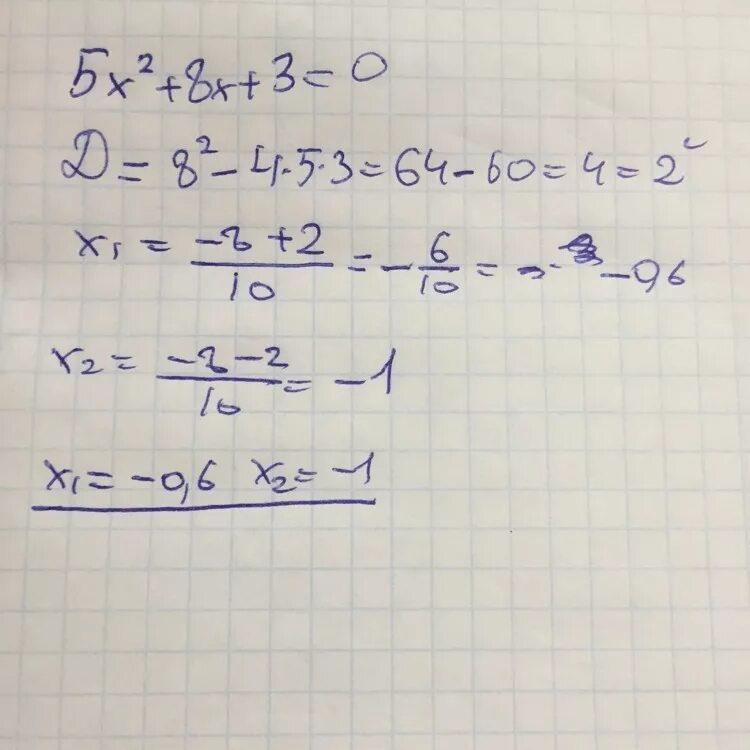 5x²+8x+3=0
D=8²-4·5·3=64-60=4=2²
x₁=(-8+2)/10=-6/10=-0,6
x₂=(-8-2)/10=-1
x₁=-0,6 x₂=-1